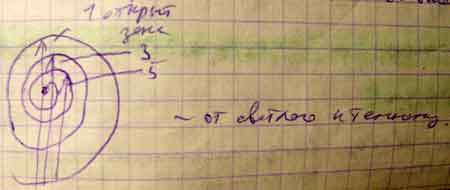 1 открыт
зена
3
5
~ от светлого к темному.